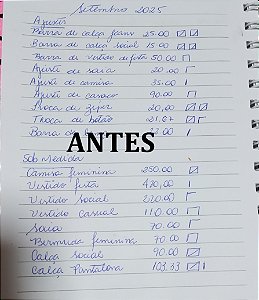 Setembro 2025
Ajustes
Barra de calça jeans 25.00
Barra de calça social 15.00
Barra de vestido de festa 50.00
Ajuste de saia 20.00
Ajuste de camisa 35.00
Ajuste de casaco 90.00
Troca de ziper 20,00
Troca de botão 21.67
Barra de
ANTES
Sob Medida
Camisa feminina 250.00
Vestido festa 420,00
Vestido social 220.00
Vestido Casual 110.00
Saia 70.00
Bermuda feminina 70.00
Calça social 90.00
Calça Pantalona 103.33